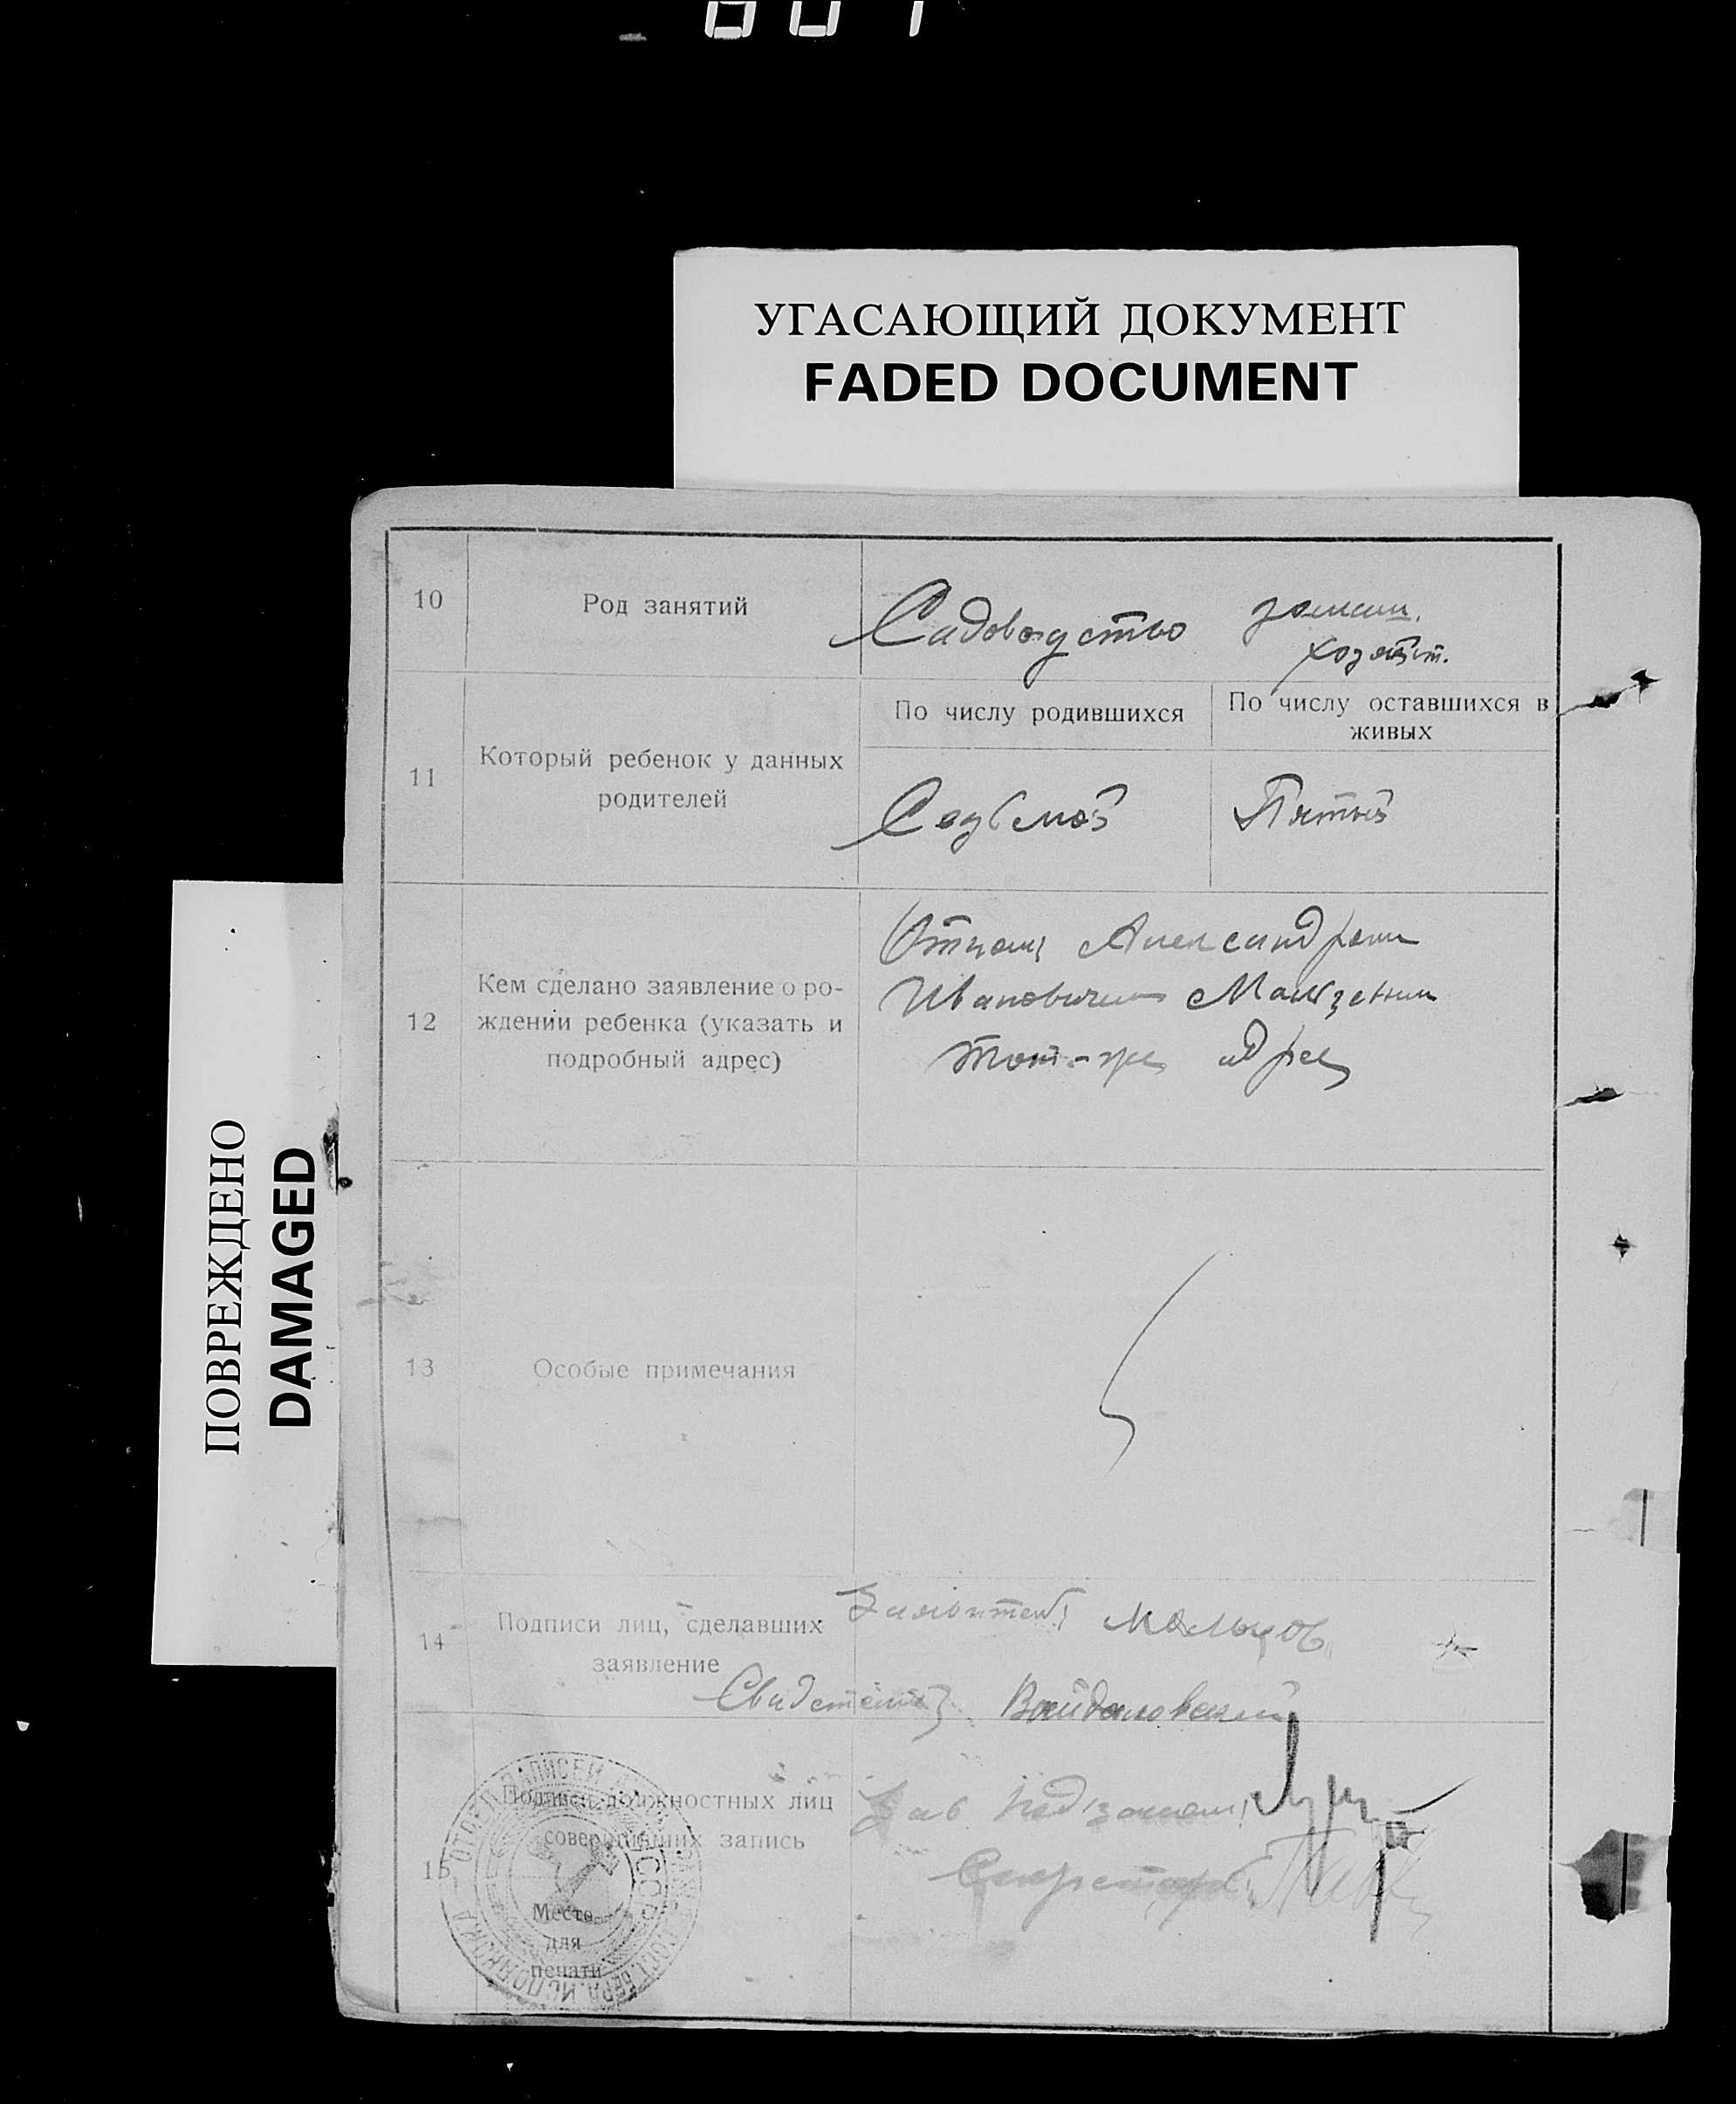 УГАСАЮЩИЙ ДОКУМЕНТ
FADED DOCUMENT
ПОВРЕЖДЕНО
DAMAGED
10
Род занятий
Садоводство
домаш.
хозяйст.
11
Который ребенок у данных
родителей
По числу родившихся
По числу оставшихся в
живых
Седьмой
Пятый
12
Кем сделано заявление о ро-
ждении ребенка (указать и
подробный адрес)
Отцом Александром
Ивановичем
тот-же адрес
13
Особые примечания
14
Подписи лиц, сделавших
заявление
Заявитель Мальцов
Свидетель
15
Подписи должностных лиц
совершивших запись
Зав
Секретарь
Место
для
печати